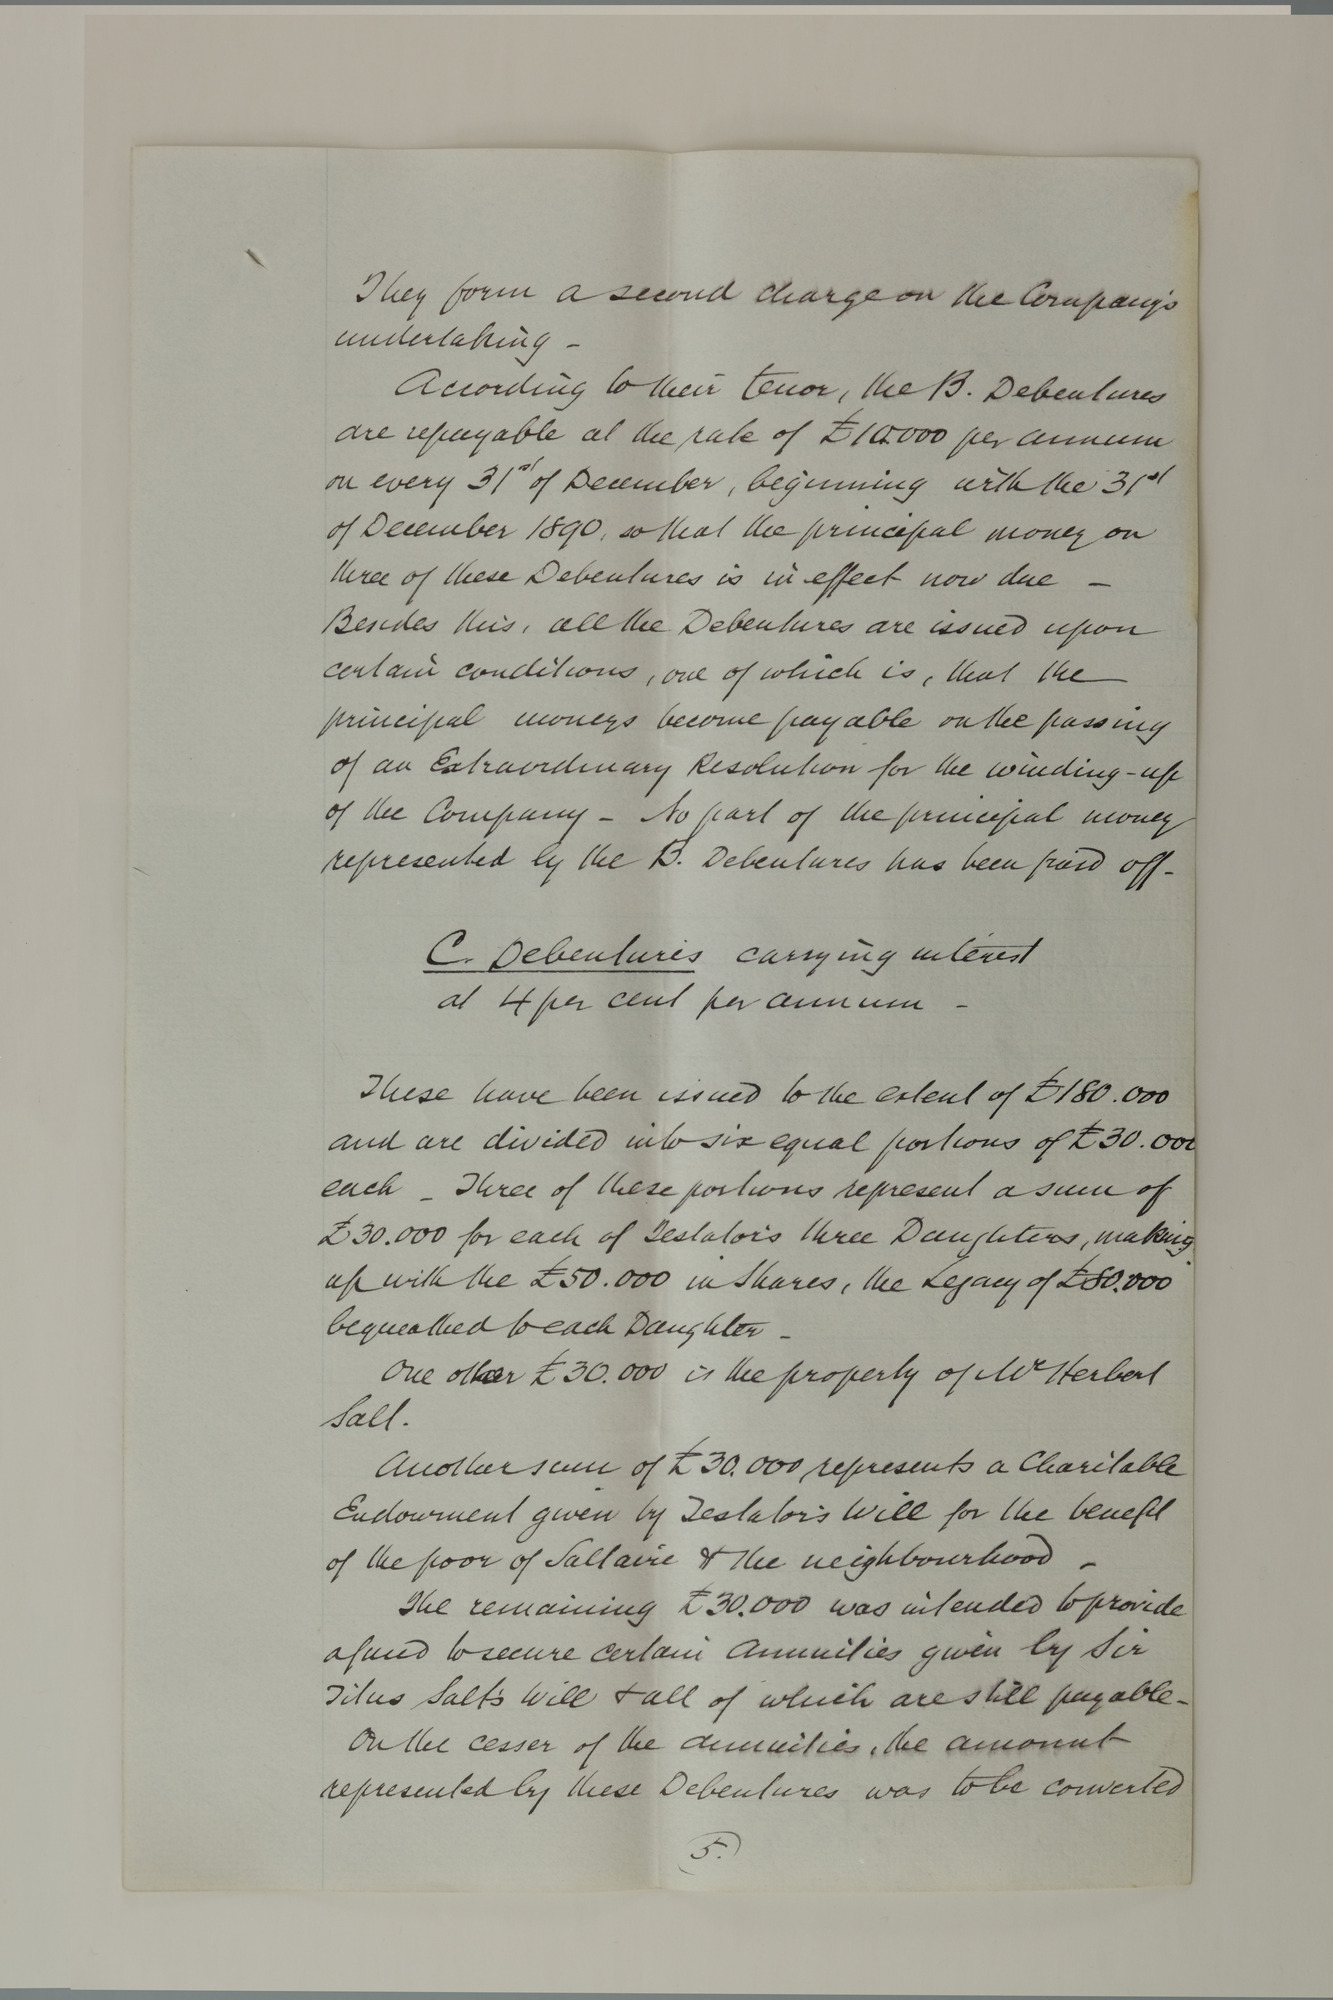 They form a second charge on the Company's
undertaking -
According to their tenor, the B. Debentures
are repayable at the rate of £10.000 per annum
on every 31st of December, beginning with the 31st
of December 1890, so that the principal money on
three of these Debentures is in effect now due -
Besides this, all the Debentures are issued upon
certain conditions, one of which is, that the
principal moneys become payable on the passing
of an Extraordinary Resolution for the winding-up
of the Company - No part of the principal money
represented by the B. Debentures has been paid off -
C. Debentures carrying interest
at 4 per cent per annum -
These have been issued to the extent of £180.000
and are divided into six equal portions of £30.000
each - Three of these portions represent a sum of
£30.000 for each of Testator's three Daughters, making
up with the £50.000 in Shares, the Legacy of £80.000
bequeathed to each Daughter -
One other £30.000 is the property of Mr Herbert
Salt.
Another sum of £30.000 represents a Charitable
Endowment given by Testator's Will for the benefit
of the poor of Saltaire & the neighbourhood -
The remaining £30.000 was intended to provide
a fund to secure certain Annuities given by Sir
Titus Salt's Will & all of which are still payable -
On the cesser of the annuities, the amount
represented by these Debentures was to be converted
5.